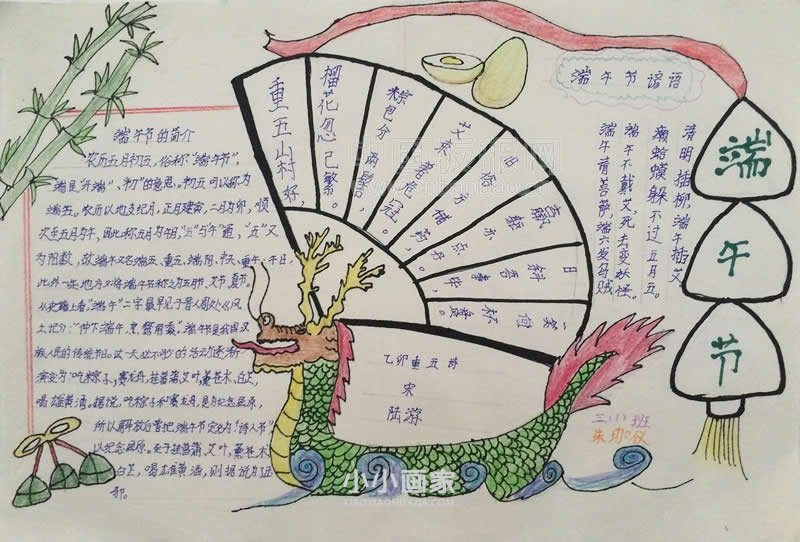 端午节的简介
农历五月初五,俗称"端午节",
端是"开端"、"初"的意思。初五可以称为
端五。农历以地支纪月,正月建寅,二月为卯,顺
次至五月为午,因此称五月为午月,"五"与"午"通,"五"又
为阳数,故端午又名端五、重五、端阳、中天、重午、午日,
此外一些地方又将端午节称之为五月节、艾节、夏节。
从史籍上看,"端午"二字最早见于晋人周处《风
土记》:"仲下端午,烹鹜用
端午节是我国汉
族人民的传统节日。这一天必不可少的活动逐渐
演变为:吃粽子,赛龙舟,挂菖蒲艾叶,薰苍术、白芷,
喝雄黄酒。据说,吃粽子和赛龙舟,是为纪念屈原,
所以解放后曾把端午节定名为"诗人节"
以纪念屈原。至于挂菖蒲、艾叶,薰苍术
白芷,喝雄黄酒,则据说为压
邪。
重五山村好,
榴花忽已繁。
粽包分两髻,
艾束著危冠。
旧俗方储药,
羸躯亦点丹。
日斜吾事毕,
一笑向杯盘。
乙卯重五诗
宋
陆游
端午节谚语
清明插柳,端午插艾
癞蛤蟆躲不过五月五。
端午不戴艾,死去变妖怪。
端午请菩萨,端六发乌贼
端
午
节
三(1)班
小小画家
XIAOXIAOHUAJIA.COM